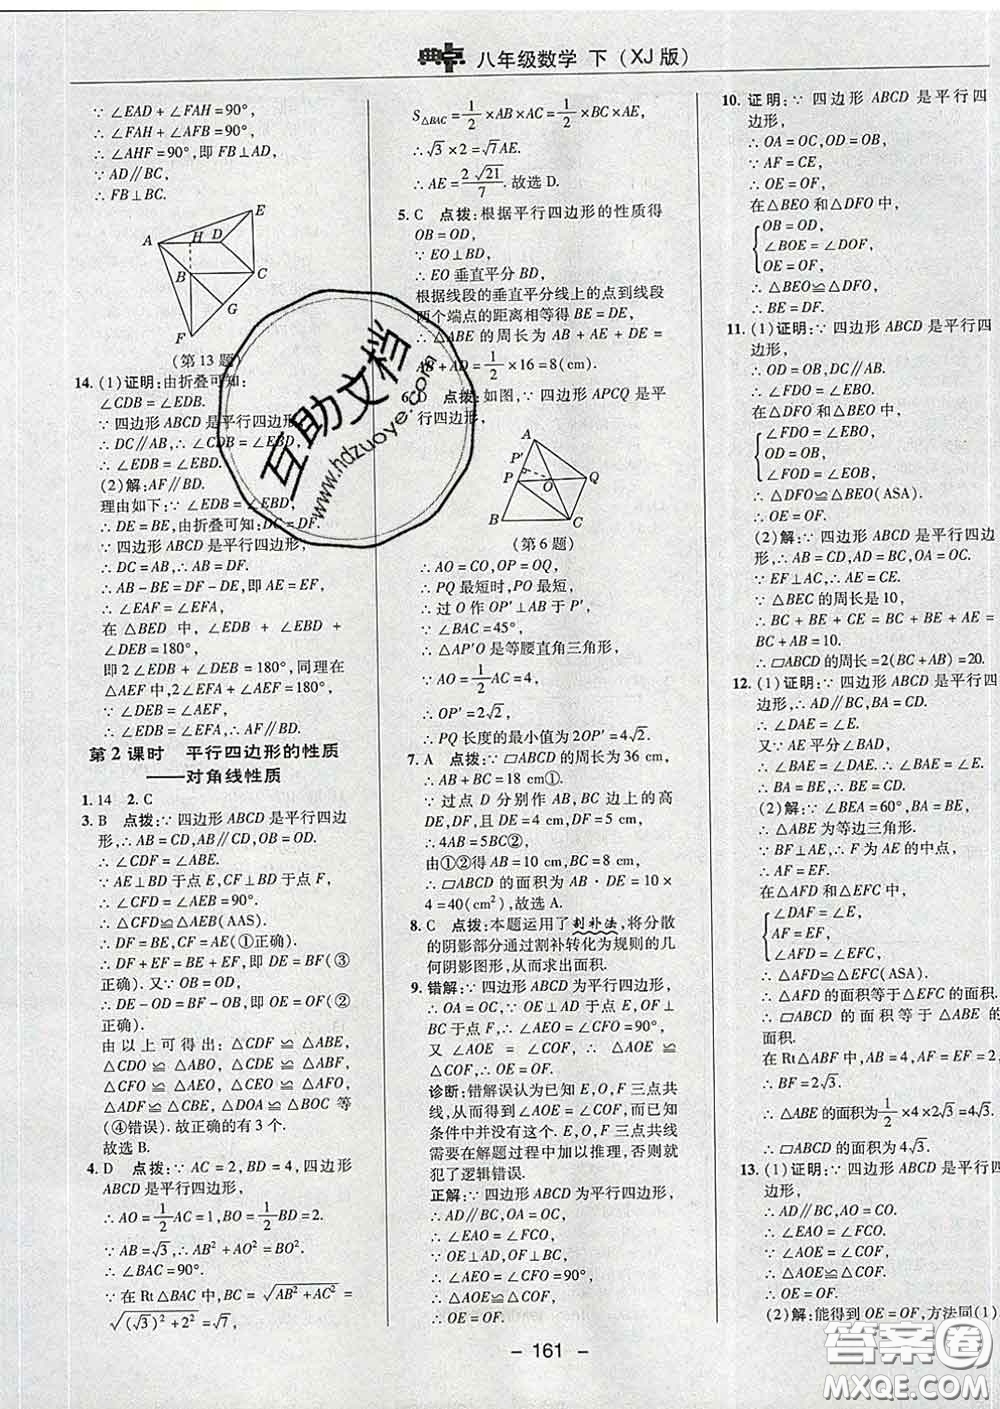 典点 八年级数学 下(XJ版)
∵∠EAD+∠FAH=90°,
∴∠FAH+∠AFB=90°,
∴∠AHF=90°,即FB⊥AD,
∵AD∥BC,
∴FB⊥BC.
E
A H D
B C
G
F
(第13题)
14. (1)证明:由折叠可知:
∠CDB=∠EDB.
∵四边形ABCD是平行四边形,
∴DC∥AB,∴∠CDB=∠EBD,
∴∠EDB=∠EBD.
(2)解:AF∥BD.
理由如下:∵∠EDB=∠EBD,
∴DE=BE,由折叠可知:DC=DF.
∵四边形ABCD是平行四边形,
∴DC=AB,∴AB=DF.
∴AB-BE=DF-DE,即AE=EF,
∴∠EAF=∠EFA,
在△BED中,∠EDB+∠EBD+
∠DEB=180°,
即2∠EDB+∠DEB=180°,同理在
△AEF中,2∠EFA+∠AEF=180°,
∵∠DEB=∠AEF,
∴∠EDB=∠EFA,∴AF∥BD.
第2课时 平行四边形的性质
——对角线性质
1. 14 2. C
3. B 点拨:∵四边形ABCD是平行四边
形,∴AB=CD,AB∥CD,OB=OD.
∴∠CDF=∠ABE.
∵AE⊥BD于点E,CF⊥BD于点F,
∴∠CFD=∠AEB=90°,
∴△CFD≌△AEB(AAS).
∴DF=BE,CF=AE(①正确).
∴DF+EF=BE+EF,即DE=BF(③
正确).又∵OB=OD,
∴DE-OD=BF-OB,即OE=OF(②
正确).
由以上可得出:△CDF≌△ABE,
△CDO≌△ABO,△CDE≌△ABF,
△CFO≌△AEO,△CEO≌△AFO,
△ADF≌△CBE,△DOA≌△BOC等
(④错误).故正确的有3个.
故选B.
4. D 点拨:∵AC=2,BD=4,四边形
ABCD是平行四边形,
∴AO=1/2AC=1,BO=1/2BD=2.
∵AB=√3,∴AB²+AO²=BO².
∴∠BAC=90°.
∵在Rt△BAC中,BC=√(AB²+AC²)=
√((√3)²+2²)=√7,
S△BAC=1/2×AB×AC=1/2×BC×AE,
∴√3×2=√7AE.
∴AE=2√21/7.故选D.
5. C 点拨:根据平行四边形的性质得
OB=OD,
∵EO⊥BD,
∴EO垂直平分BD,
根据线段的垂直平分线上的点到线段
两个端点的距离相等得BE=DE,
∴△ABE的周长为AB+AE+DE=
AB+AD=1/2×16=8(cm).
6. D 点拨:如图,∵四边形APCQ是平
行四边形,
A
P′
P O Q
B C
(第6题)
∴AO=CO,OP=OQ,
∴PQ最短时,PO最短,
∴过O作OP′⊥AB于P′,
∵∠BAC=45°,
∴△AP′O是等腰直角三角形,
∵AO=1/2AC=4,
∴OP′=2√2,
∴PQ长度的最小值为2OP′=4√2.
7. A 点拨:∵▱ABCD的周长为36 cm,
∴AB+BC=18 cm①.
∵过点D分别作AB,BC边上的高
DE,DF,且DE=4 cm,DF=5 cm,
∴4AB=5BC②,
由①②得AB=10 cm,BC=8 cm,
∴▱ABCD的面积为AB·DE=10×
4=40(cm²),故选A.
8. C 点拨:本题运用了割补法,将分散
的阴影部分通过割补转化为规则的几
何阴影图形,从而求出面积.
9. 错解:∵四边形ABCD为平行四边形,
∴OA=OC,∵OE⊥AD于点E,OF⊥
BC于点F,∴∠AEO=∠CFO=90°,
又∠AOE=∠COF,∴△AOE≌
△COF,∴OE=OF.
诊断:错解误认为已知E,O,F三点共
线,从而得到∠AOE=∠COF,而已知
条件中并没有这个.E,O,F三点共线
需要在解题过程中加以推理,否则就
犯了逻辑错误.
正解:∵四边形ABCD为平行四边形,
∴AD∥BC,OA=OC,
∴∠EAO=∠FCO,
∵OE⊥AD,OF⊥BC,
∴∠AEO=∠CFO=90°,
∴△AOE≌△COF,
∴OE=OF.
10. 证明:∵四边形ABCD是平行四
边形,
∴OA=OC,OD=OB,
∵AF=CE,
∴OE=OF,
在△BEO和△DFO中,
OB=OD,
∠BOE=∠DOF,
OE=OF,
∴△BEO≌△DFO,
∴BE=DF.
11. (1)证明:∵四边形ABCD是平行四
边形,
∴OD=OB,AB∥CD,
∴∠FDO=∠EBO,
在△DFO和△BEO中,
∠FDO=∠EBO,
OD=OB,
∠FOD=∠EOB,
∴△DFO≌△BEO(ASA).
∴OE=OF.
(2)解:∵四边形ABCD是平行四边
形,∴AB=CD,AD=BC,OA=OC.
∵EF⊥AC,∴AE=CE.
∵△BEC的周长是10,
∴BC+BE+CE=BC+BE+AE=
BC+AB=10.
∴▱ABCD的周长=2(BC+AB)=20.
12. (1)证明:∵四边形ABCD是平行四
边形,∴AD∥BC,AB=CD.
∴∠DAE=∠E.
又∵AE平分∠BAD,
∴∠BAE=∠DAE.∴∠BAE=∠E.
∴BA=BE.∴BE=CD.
(2)解:∵∠BEA=60°,BA=BE,
∴△ABE为等边三角形.
∵BF⊥AE,∴F为AE的中点,
∴AF=EF.
在△AFD和△EFC中,
∠DAF=∠E,
AF=EF,
∠AFD=∠EFC,
∴△AFD≌△EFC(ASA).
∴△AFD的面积等于△EFC的面积.
∴▱ABCD的面积等于△ABE的
面积.
在Rt△ABF中,AB=4,AF=EF=2,
∴BF=2√3.
∴△ABE的面积为1/2×4×2√3=4√3.
∴▱ABCD的面积为4√3.
13. (1)证明:∵四边形ABCD是平行四
边形,
∴AD∥BC,AO=CO.
∴∠EAO=∠FCO.
∵∠AOE=∠COF,
∴△AOE≌△COF.
∴OE=OF.
(2)解:能得到OE=OF,方法同(1).
- 161 -
互助文档
www.hdzuoye.com
答案圈
MXQE.COM